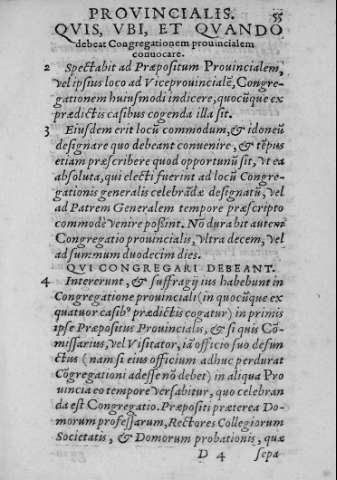 PROVINCIALIS. 55
QVIS, VBI, ET QVANDO
debeat Congregationem prouincialem
conuocare.
2 Spectabit ad Præpositum Prouincialem,
vel ipsius loco ad Viceprouincialē, Congre-
gationem huiusmodi indicere, quocūque ex
prædictis casibus cogenda illa sit.
3 Eiusdem erit locū commodum, & idoneū
designare quo debeant conuenire, & tēpus
etiam præscribere quod opportunū sit, vt ea
absoluta, qui electi fuerint ad locū Congre-
gationis generalis celebrādæ designatū, vel
ad Patrem Generalem tempore præscripto
commodè venire possint. Nō durabit autem
Congregatio prouincialis, vltra decem, vel
ad summum duodecim dies.
QVI CONGREGARI DEBEANT.
4 Intererunt, & suffragij ius habebunt in
Congregatione prouinciali (in quocūque ex
quatuor casib⁹ prædictis cogatur) in primis
ipse Præpositus Prouincialis, & si quis Cō-
missarius, vel Visitator, iā officio suo defun-
ctus (nam si eius officium adhuc perdurat
Cōgregationi adesse nō debet) in aliqua Pro
uincia eo tempore versabitur, quo celebran
da est Congregatio. Præpositi præterea Do-
morum professarum, Rectores Collegiorum
Societatis, & Domorum probationis, quæ
D 4 sepa